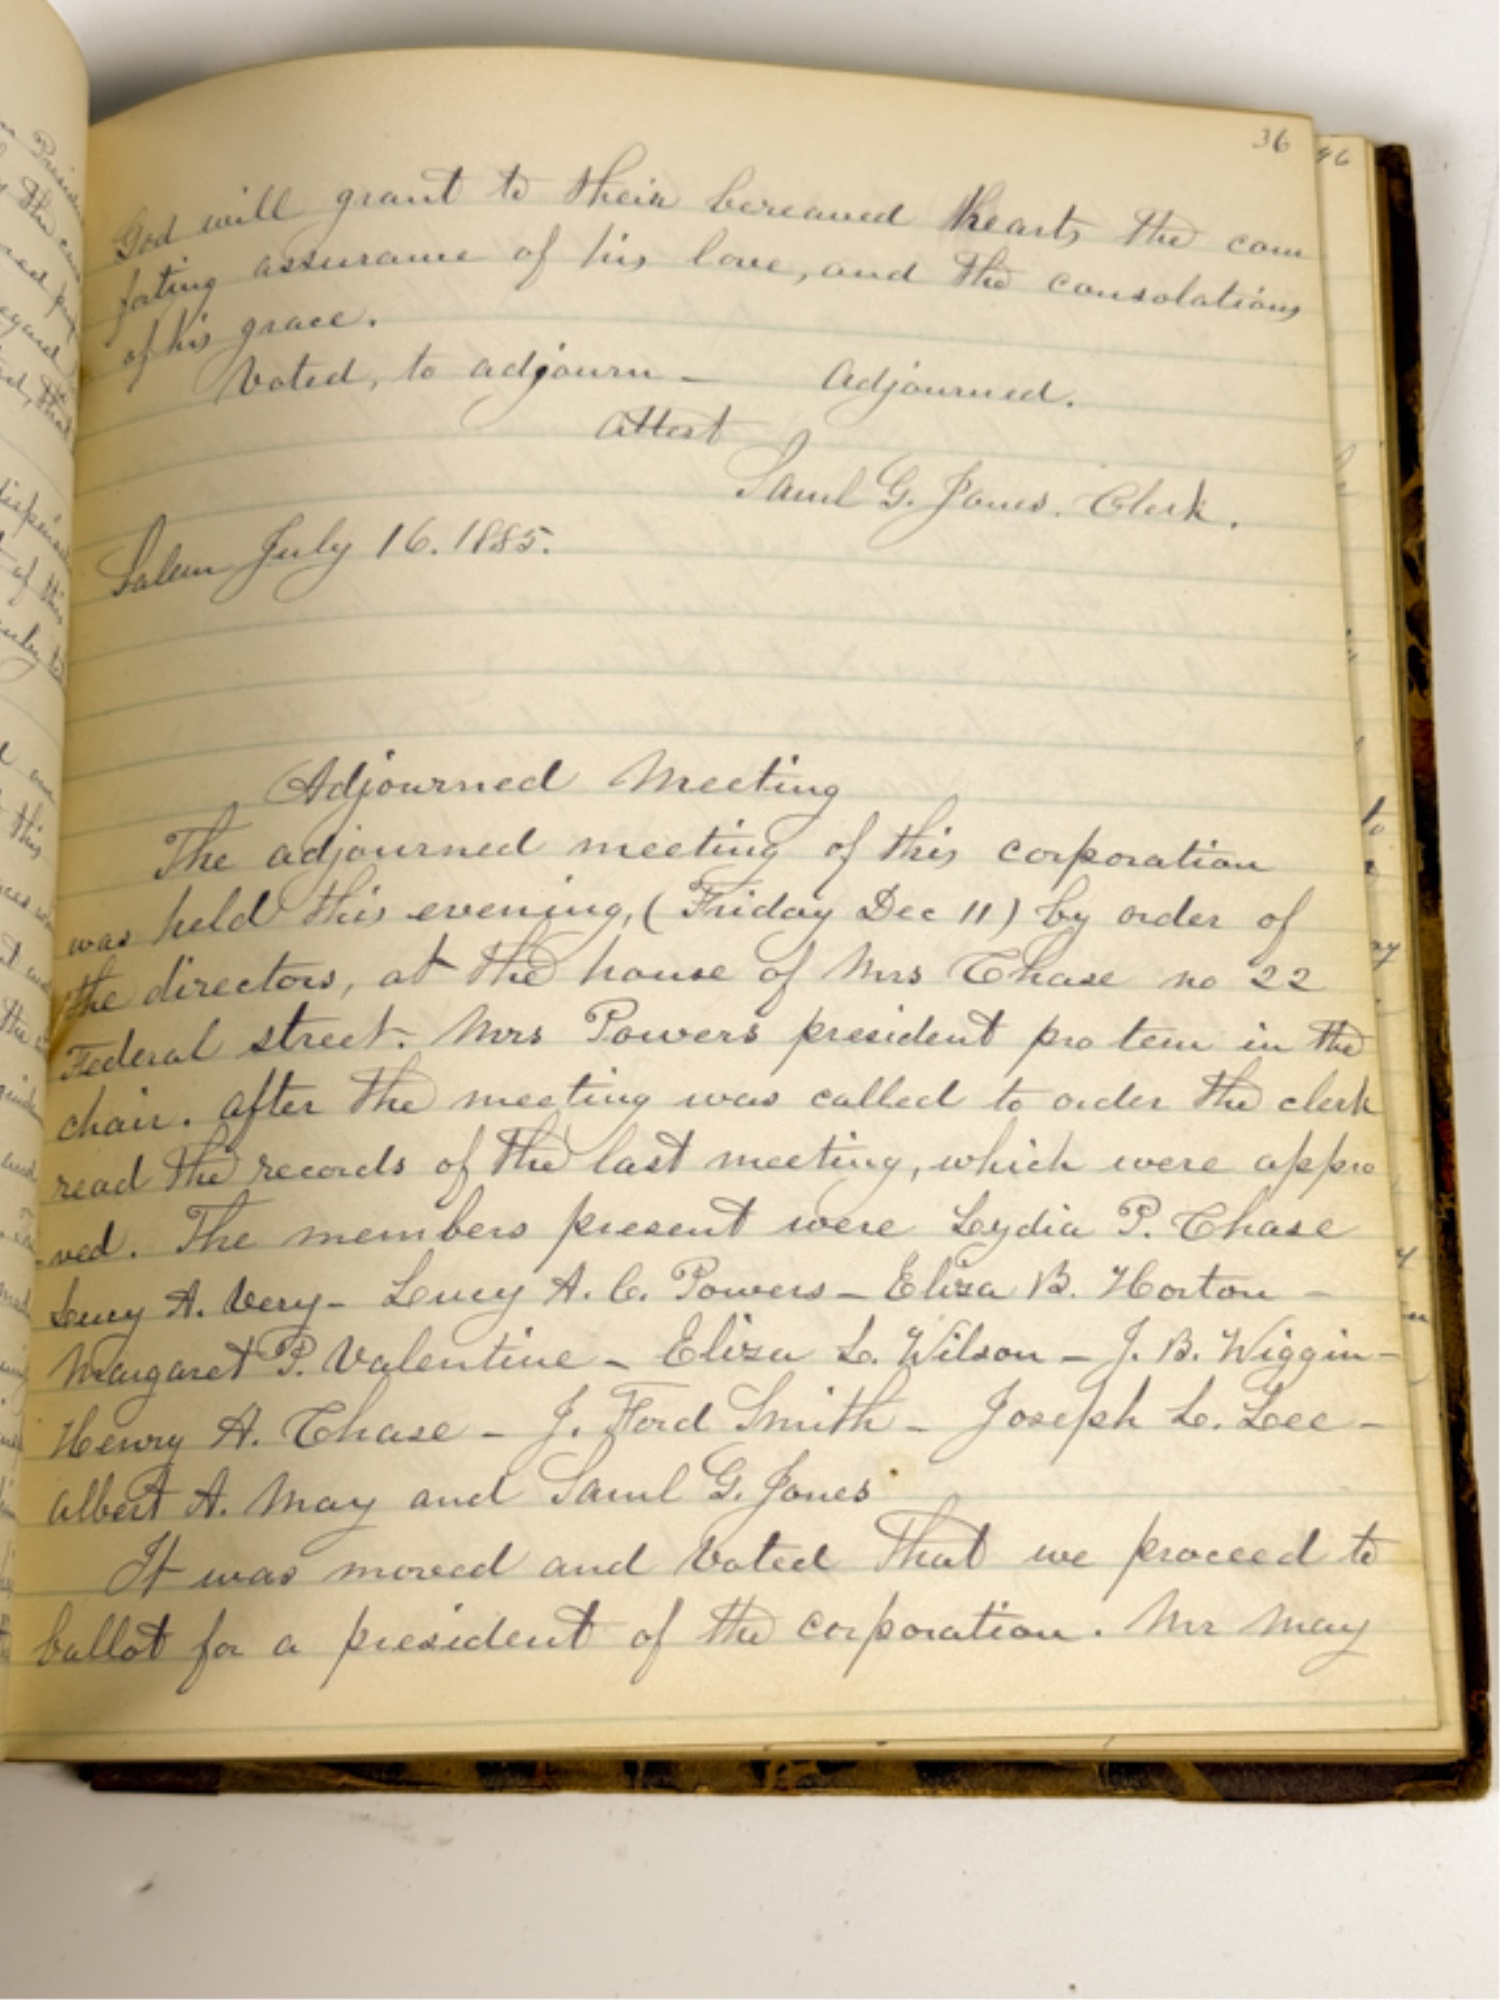 36
God will grant to their bereaved hearts the com
forting assurance of his love, and the consolations
of his grace.
Voted, to adjourn – Adjourned.
Attest
Saml G. Jones. Clerk.
Salem July 16. 1885.
Adjourned Meeting
The adjourned meeting of this corporation
was held this evening, (Friday Dec 11) by order of
the directors, at the house of Mrs Chase no 22
Federal street. Mrs Powers president pro tem in the
chair. After the meeting was called to order the clerk
read the records of the last meeting, which were appro
-ved. The members present were Lydia P. Chase
Lucy A. Very – Lucy A. C. Powers – Eliza B. Horton –
Margaret P. Valentine – Eliza L. Wilson – J. B. Wiggin –
Henry A. Chase – J. Ford Smith – Joseph L. Lee –
Albert A. May and Saml G. Jones
It was moved and voted that we proceed to
ballot for a president of the corporation. Mr May